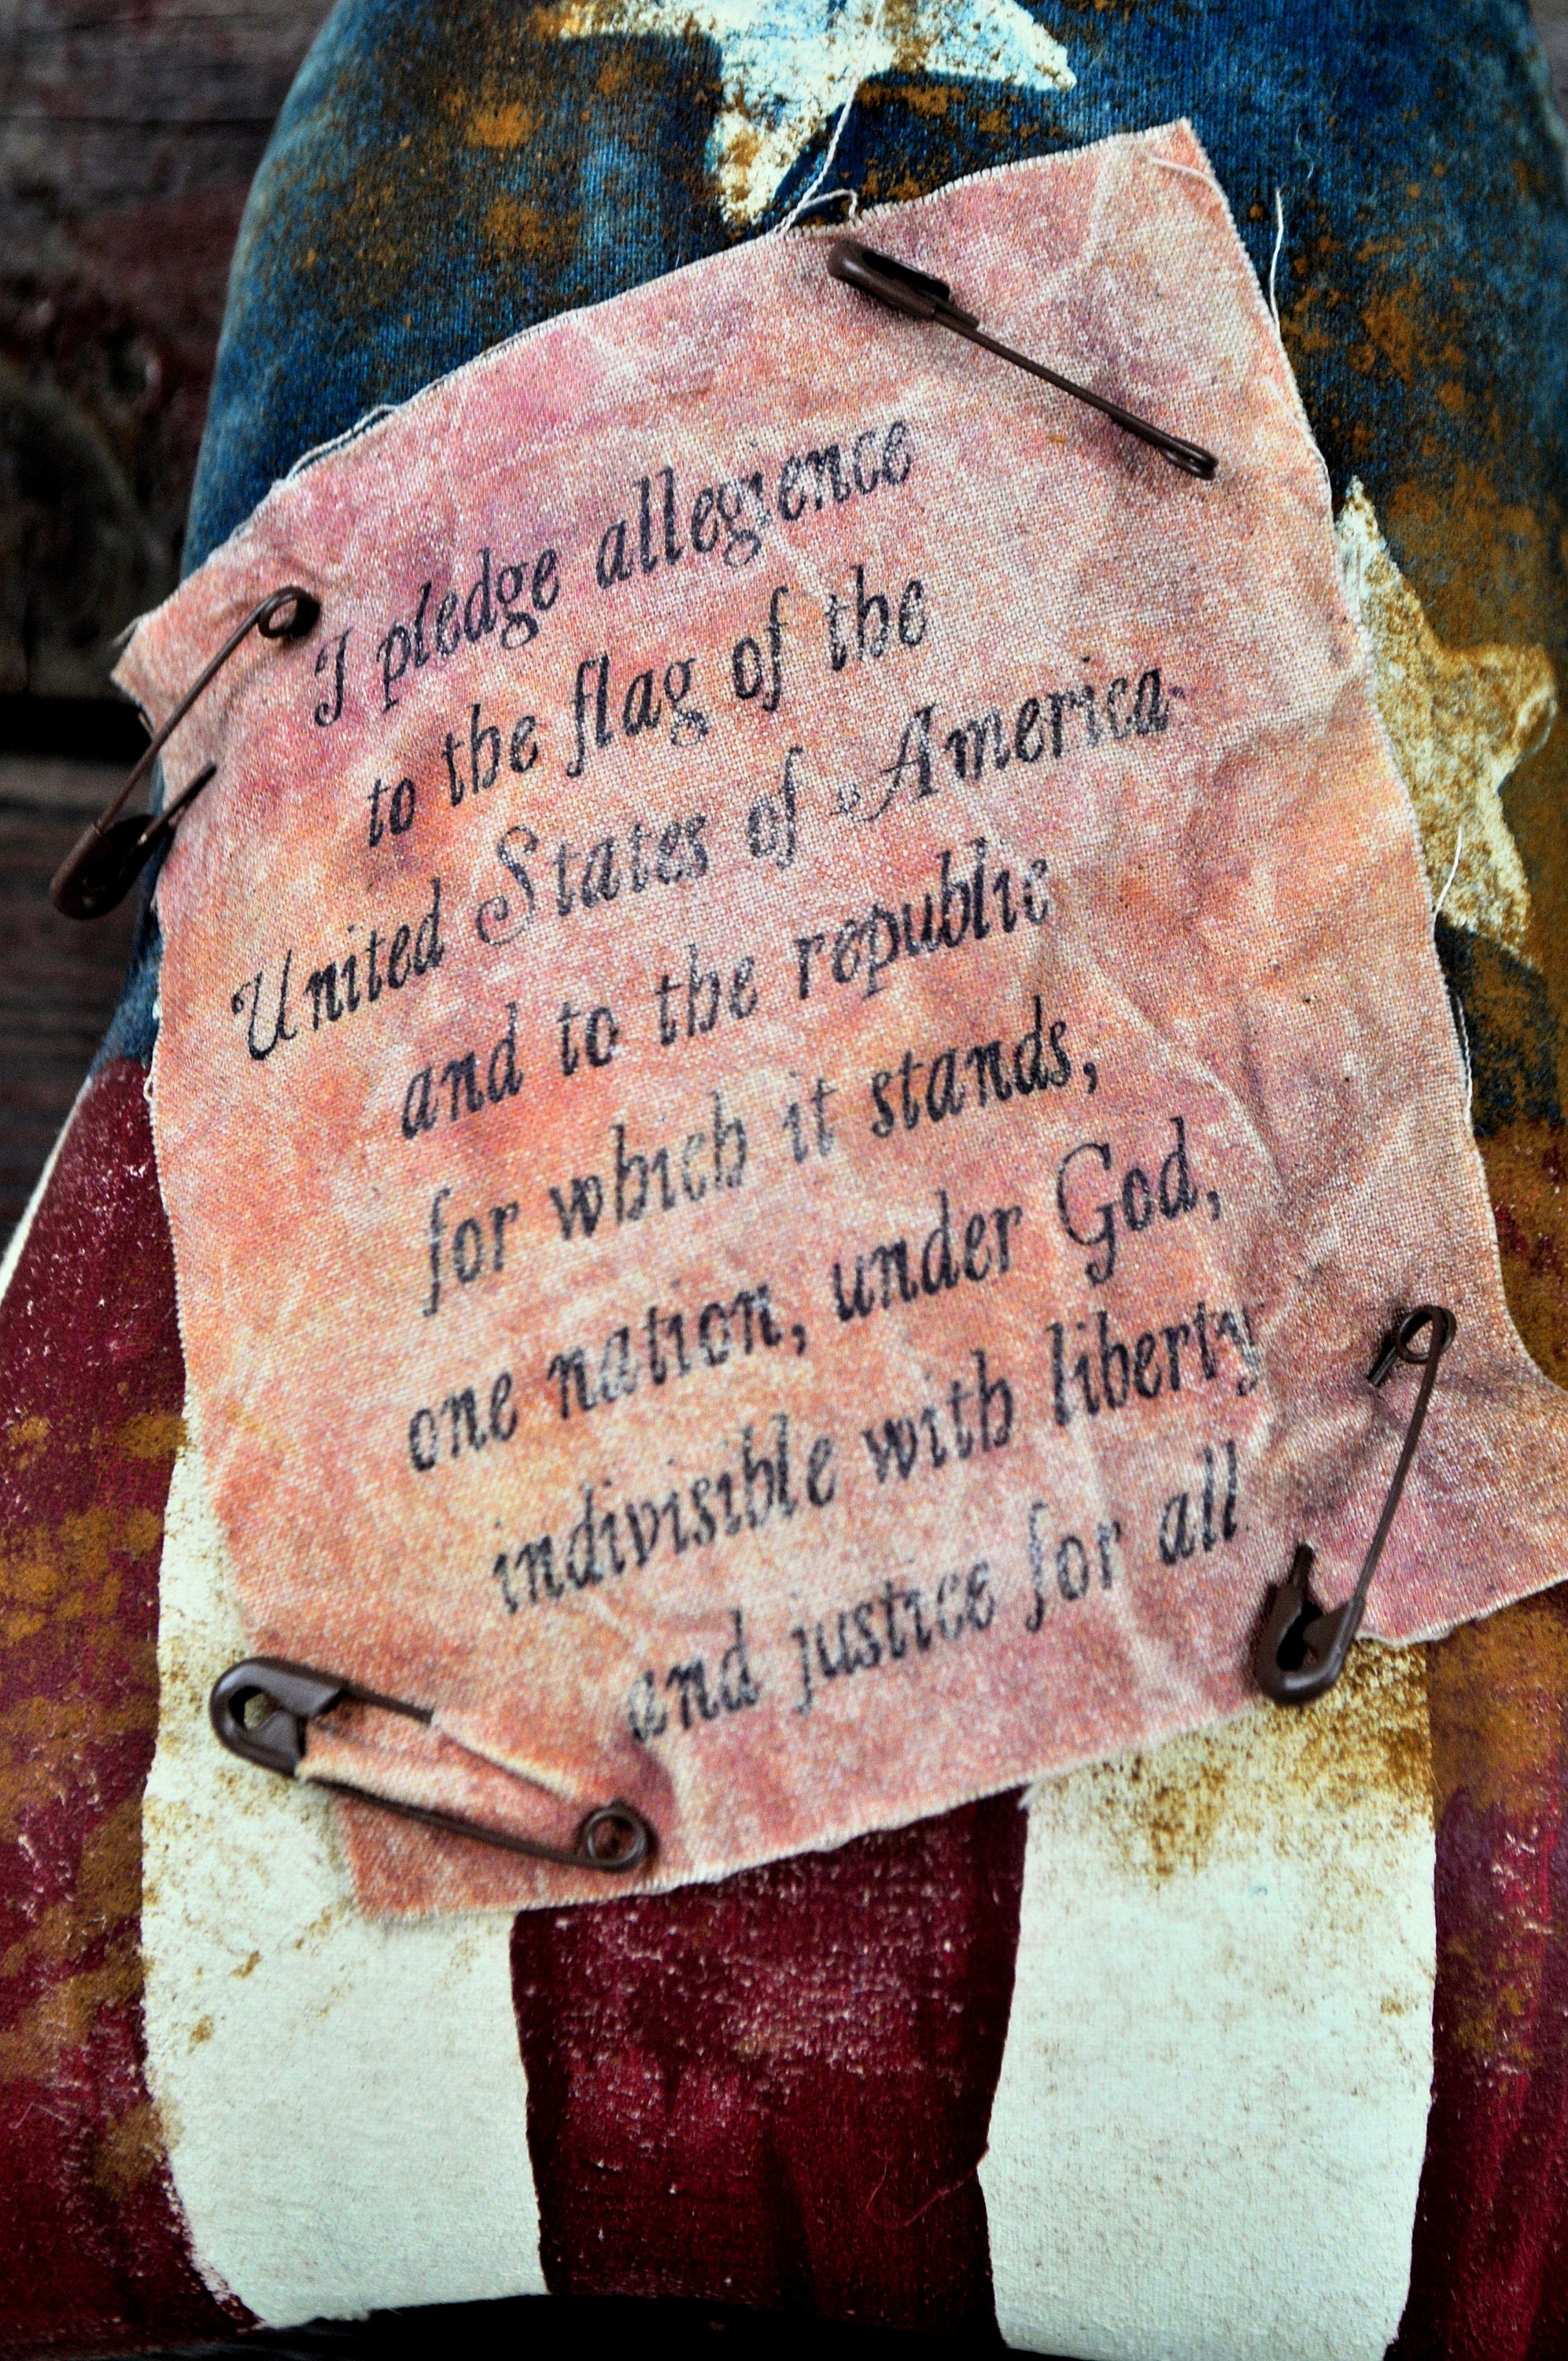 I pledge allegience
to the flag of the
United States of America
and to the republic
for which it stands,
one nation, under God,
indivisible with liberty
and justice for all